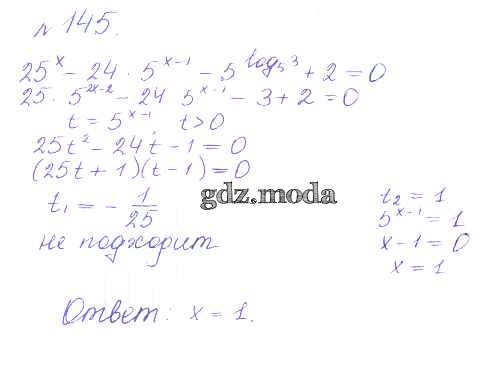 № 145.
25^x - 24 · 5^{x-1} - 5^{log_5 3} + 2 = 0
25 · 5^{2x-2} - 24 5^{x-1} - 3 + 2 = 0
t = 5^{x-1} t > 0
25t^2 - 24t - 1 = 0
(25t + 1)(t - 1) = 0
t_1 = - 1/25
не подходит
gdz.moda
t_2 = 1
5^{x-1} = 1
x - 1 = 0
x = 1
Ответ: x = 1.